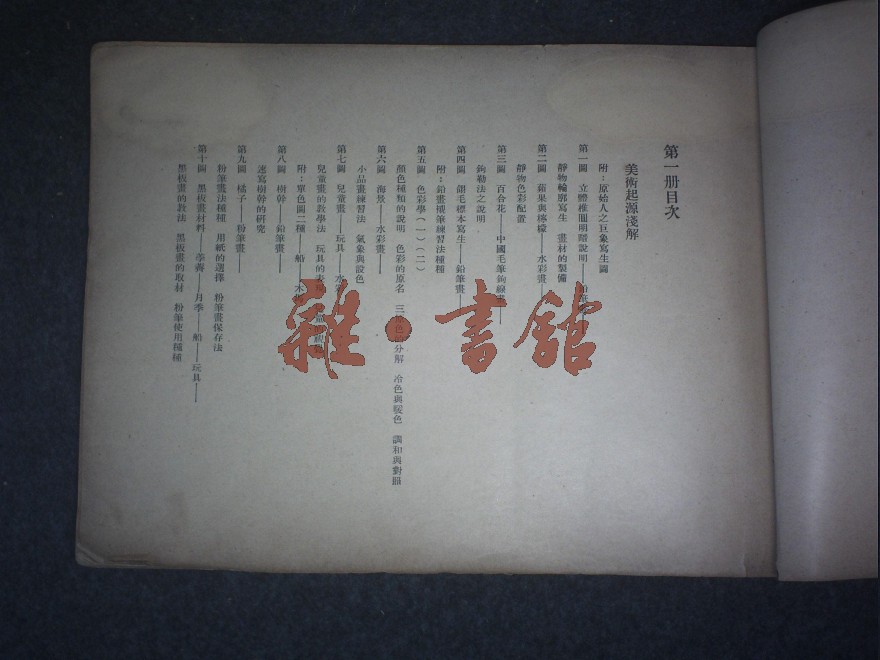 第一册目次
美術起源淺解
附：原始人之巨象寫生圖
第一圖　立體椎圓明暗說明——鉛筆
靜物輪廓寫生　畫材的製備
第二圖　蘋果與檸檬——水彩畫——
靜物色彩配置
第三圖　百合花——中國毛筆鉤線畫——
鉤勒法之說明
第四圖　翎毛標本寫生——鉛筆畫——
附：鉛畫擦筆練習法種種
第五圖　色彩學（一）（二）
顏色種類的說明　色彩的原名　三色的分解　冷色與暖色　調和與對照
第六圖　海景——水彩畫——
小品畫練習法　氣象與設色
第七圖　兒童畫——玩具——水
兒童畫的教學法　玩具的表
附：單色圖二種——船——木
第八圖　樹幹——鉛筆畫——
速寫樹幹的研究
第九圖　橘子——粉筆畫——
粉筆畫法種種　用紙的選擇　粉筆畫保存法
第十圖　黑板畫材料——荸薺——月季——船——玩具——
黑板畫的教法　黑板畫的取材　粉筆使用種種
雜·書館